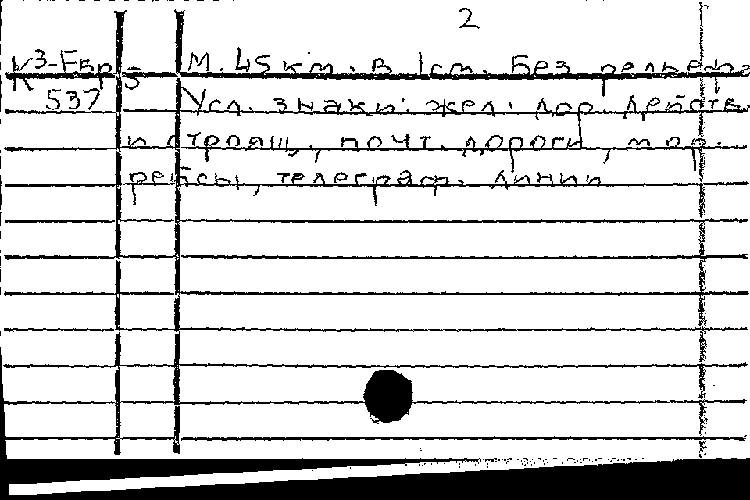 2
К3-Евр 5 М. 45 км. в 1 см. Без рельефа
537 Усл. знаки: жел. дор. действ.
и строящ., почт. дороги, мор.
рейсы, телеграф. линии